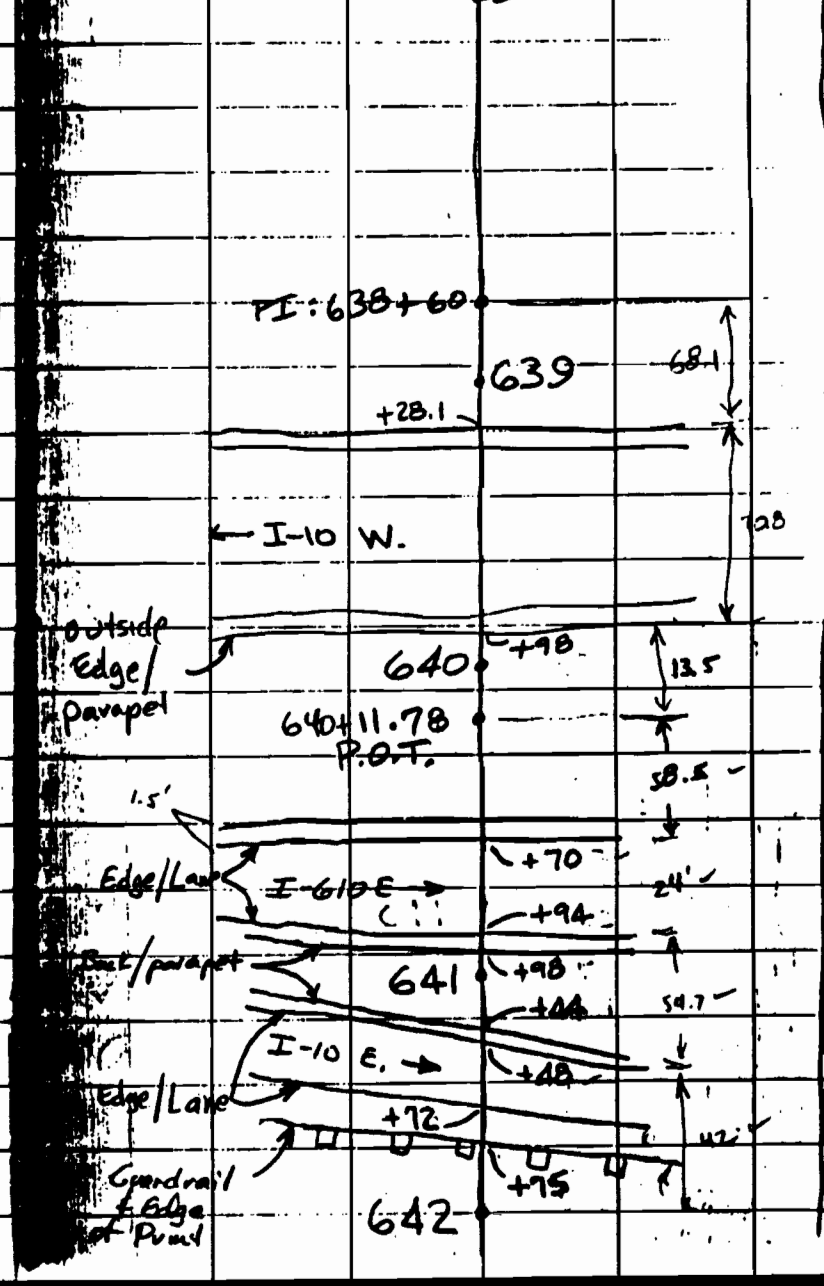 PI: 638+60
639
68.1
+28.1
I-10 W.
outside
Edge/
parapet
+98
640
13.5
640+11.78
P.O.T.
58.5
1.5'
+70
Edge/Lane
I-610 E
24'
+94
Back/parapet
641
+98
+44
54.7
I-10 E.
+48
Edge/Lane
+72
42'
+75
Guardrail
& Edge
of Pvmt
642